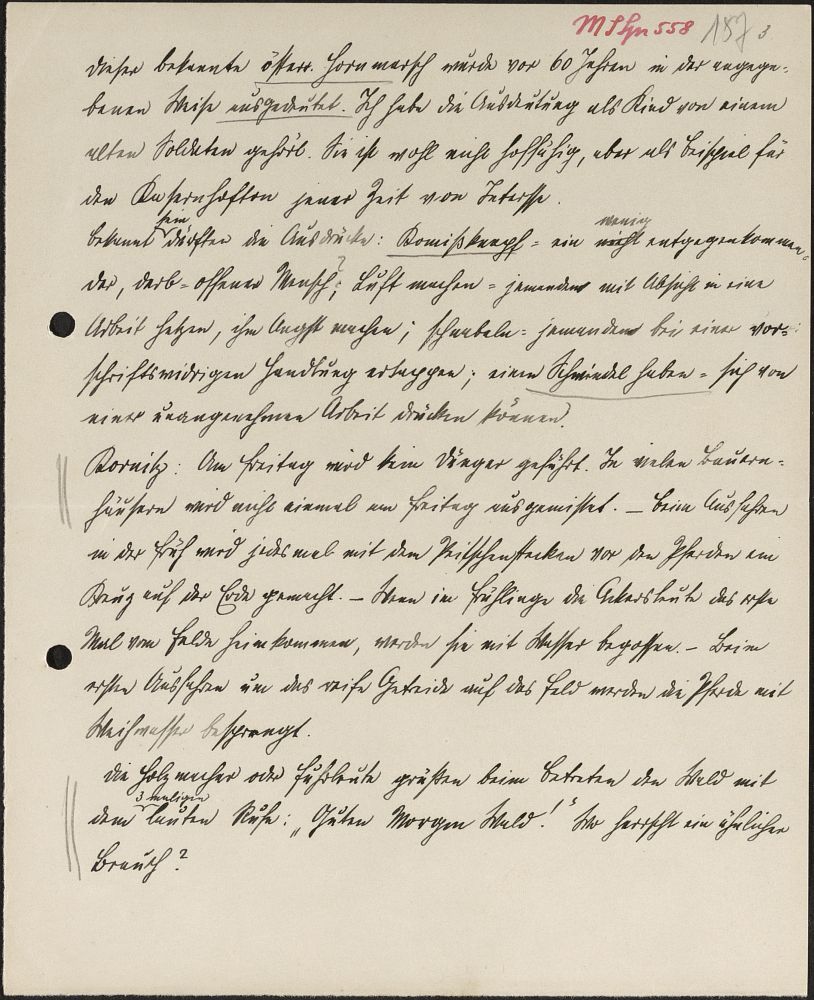 MSLpn 558 157 3
Dieser bekannte österr. Hornmarsch wurde vor 60 Jahren in der angege-
benen Weise ausgedeutet. Ich habe die Ausdeutung als Kind von einem
alten Soldaten gehört. Sie ist wohl nicht hoffähig, aber als Beispiel für
den Kasernhofton jener Zeit von Interesse.
sein wenig
Bekannt dürften die Ausdrücke: Komißknopf = ein nicht entgegenkommen-
der, derb-offener Mensch; Luft machen = jemandem mit Absicht in eine
Arbeit hetzen, ihm Angst machen; schnabeln = jemandem bei einer vor-
schriftswidrigen Handlung ertappen; einen Schwindel haben = sich von
einer unangenehmen Arbeit drücken können.
Kornitz: Am Freitag wird kein Dünger geführt. In vielen Bauern-
häusern wird nicht einmal am Freitag ausgemistet. – Beim Ausfahren
in der Früh wird jedesmal mit dem Peitschenstecken vor den Pferden ein
Kreuz auf der Erde gemacht. – Wenn im Frühlinge die Ackersleute das erste
Mal vom Felde heimkommen, werden sie mit Wasser begossen. – Beim
ersten Ausfahren um das reife Getreide auf das Feld werden die Pferde mit
Weihwasser besprengt.
Die Holzmacher oder Fuhrleute grüßen beim Betreten den Wald mit
3 maligen
dem lauten Rufe: „Guten Morgen Wald!" Wo herrscht ein ähnlicher
Brauch?